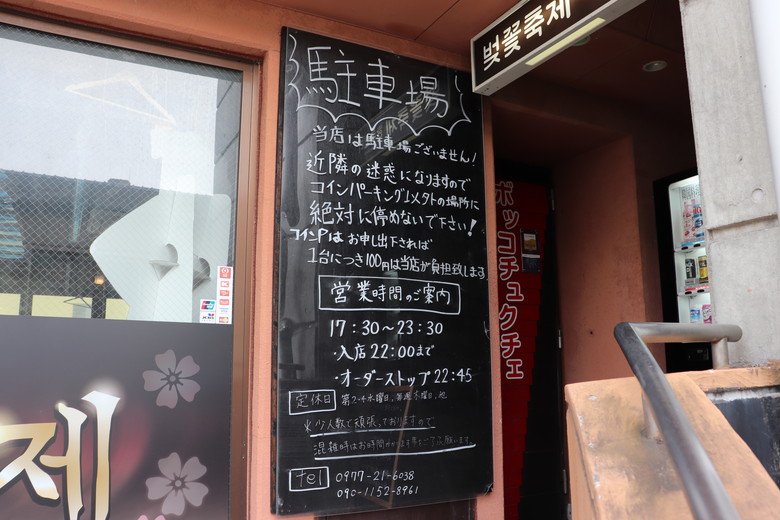 벚꽃축제
駐車場
当店は駐車場ございません!
近隣の迷惑になりますので
コインパーキング以外の場所に
絶対に停めないで下さい!
コインPはお申し出下されば
1台につき100円は当店が負担致します
営業時間のご案内
17:30〜23:30
・入店22:00まで
・オーダーストップ22:45
定休日 第2・4水曜日、毎週木曜日、他
※少人数で頑張っておりますので
混雑時はお時間かかります事をご了承願います。
tel 0977-21-6038
090-1152-8961
ボッコチュクチェ
제